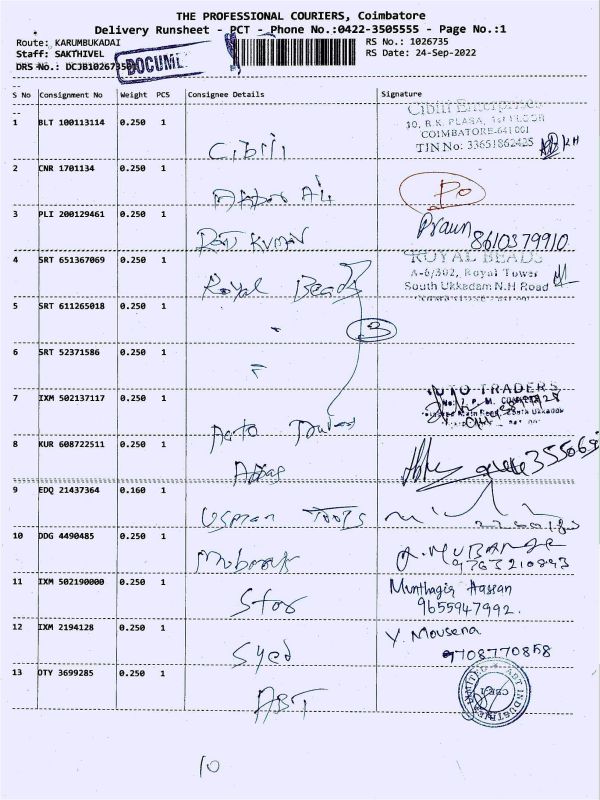 THE PROFESSIONAL COURIERS, Coimbatore
Delivery Runsheet - PCT - Phone No.:0422-3505555 - Page No.:1
Route: KARUMBUKADAI RS No.: 1026735
Staff: SAKTHIVEL RS Date: 24-Sep-2022
DRS No.: DOCUME
S No Consignment No Weight PCS Consignee Details Signature
Cibiti Enterprises
10, R.K. PLASA, 1st FLOOR
1 BLT 100113114 0.250 1
COIMBATORE-641 001
TIN No: 33651862425 KH
Cibiti
2 CNR 1701134 0.250 1
Ali Po
3 PLI 200129461 0.250 1
Raj Kumar 8610379910
ROYAL BEADS
4 SRT 651367069 0.250 1
A-6/302, Royal Tower
Royal Beads South Ukkadam N.H Road
5 SRT 611265018 0.250 1
" 3
6 SRT 52371586 0.250 1
"
AUTO TRADERS
7 IXM 502137117 0.250 1
Auto
8 KUR 608722511 0.250 1
Abbas
9 EDQ 21437364 0.160 1
Usman Tools
10 DDG 4490485 0.250 1
Mubarak A. MUBARAK
11 IXM 502190000 0.250 1 Hassan
Star 9655947992.
12 IXM 2194128 0.250 1 Y. Mousena
Syed 9708770858
13 OTY 3699285 0.250 1
ABT ABT INDUSTRIES LIMITED
10